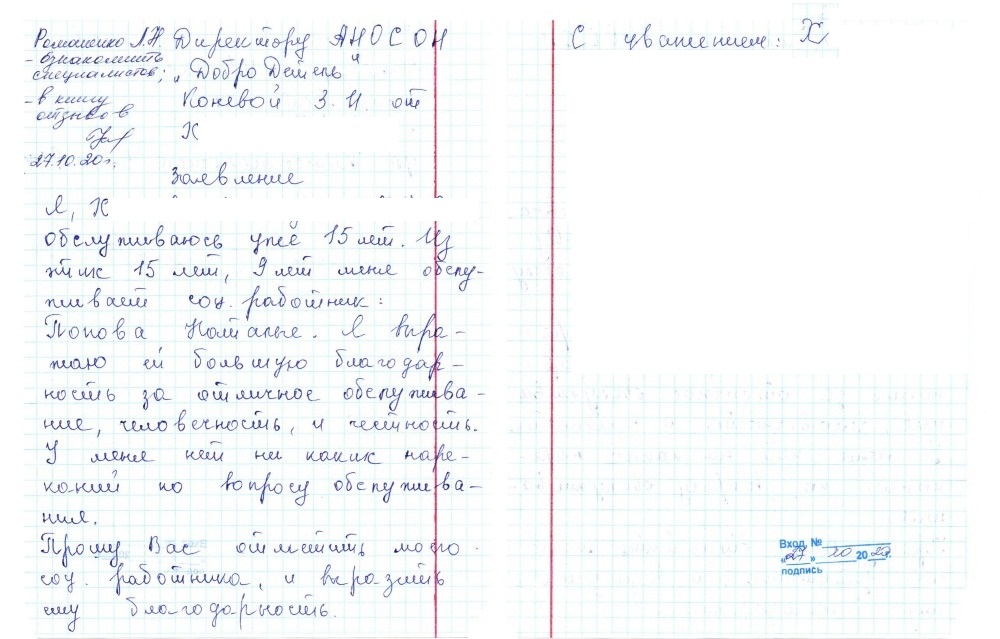 Романенко Л.Н.
- ознакомить
специалистов;
- в книгу
отзывов
27.10.20г.
Директору АНОСОН
„Добро Детель"
Коневой З.И. от
Х
Заявление
Я, Х
обслуживаюсь уже 15 лет. Из
этих 15 лет, 9 лет меня обслу-
живает соц. работник:
Попова Наталья. Я выра-
жаю ей большую благодар-
ность за отличное обслужива-
ние, человечность, и честность.
У меня нет ни каких наре-
каний по вопросу обслужива-
ния.
Прошу Вас отметить моего
соц. работника, и выразить
ему благодарность.
С уважением: Х
Вход. №
„27" 10 2020г.
подпись